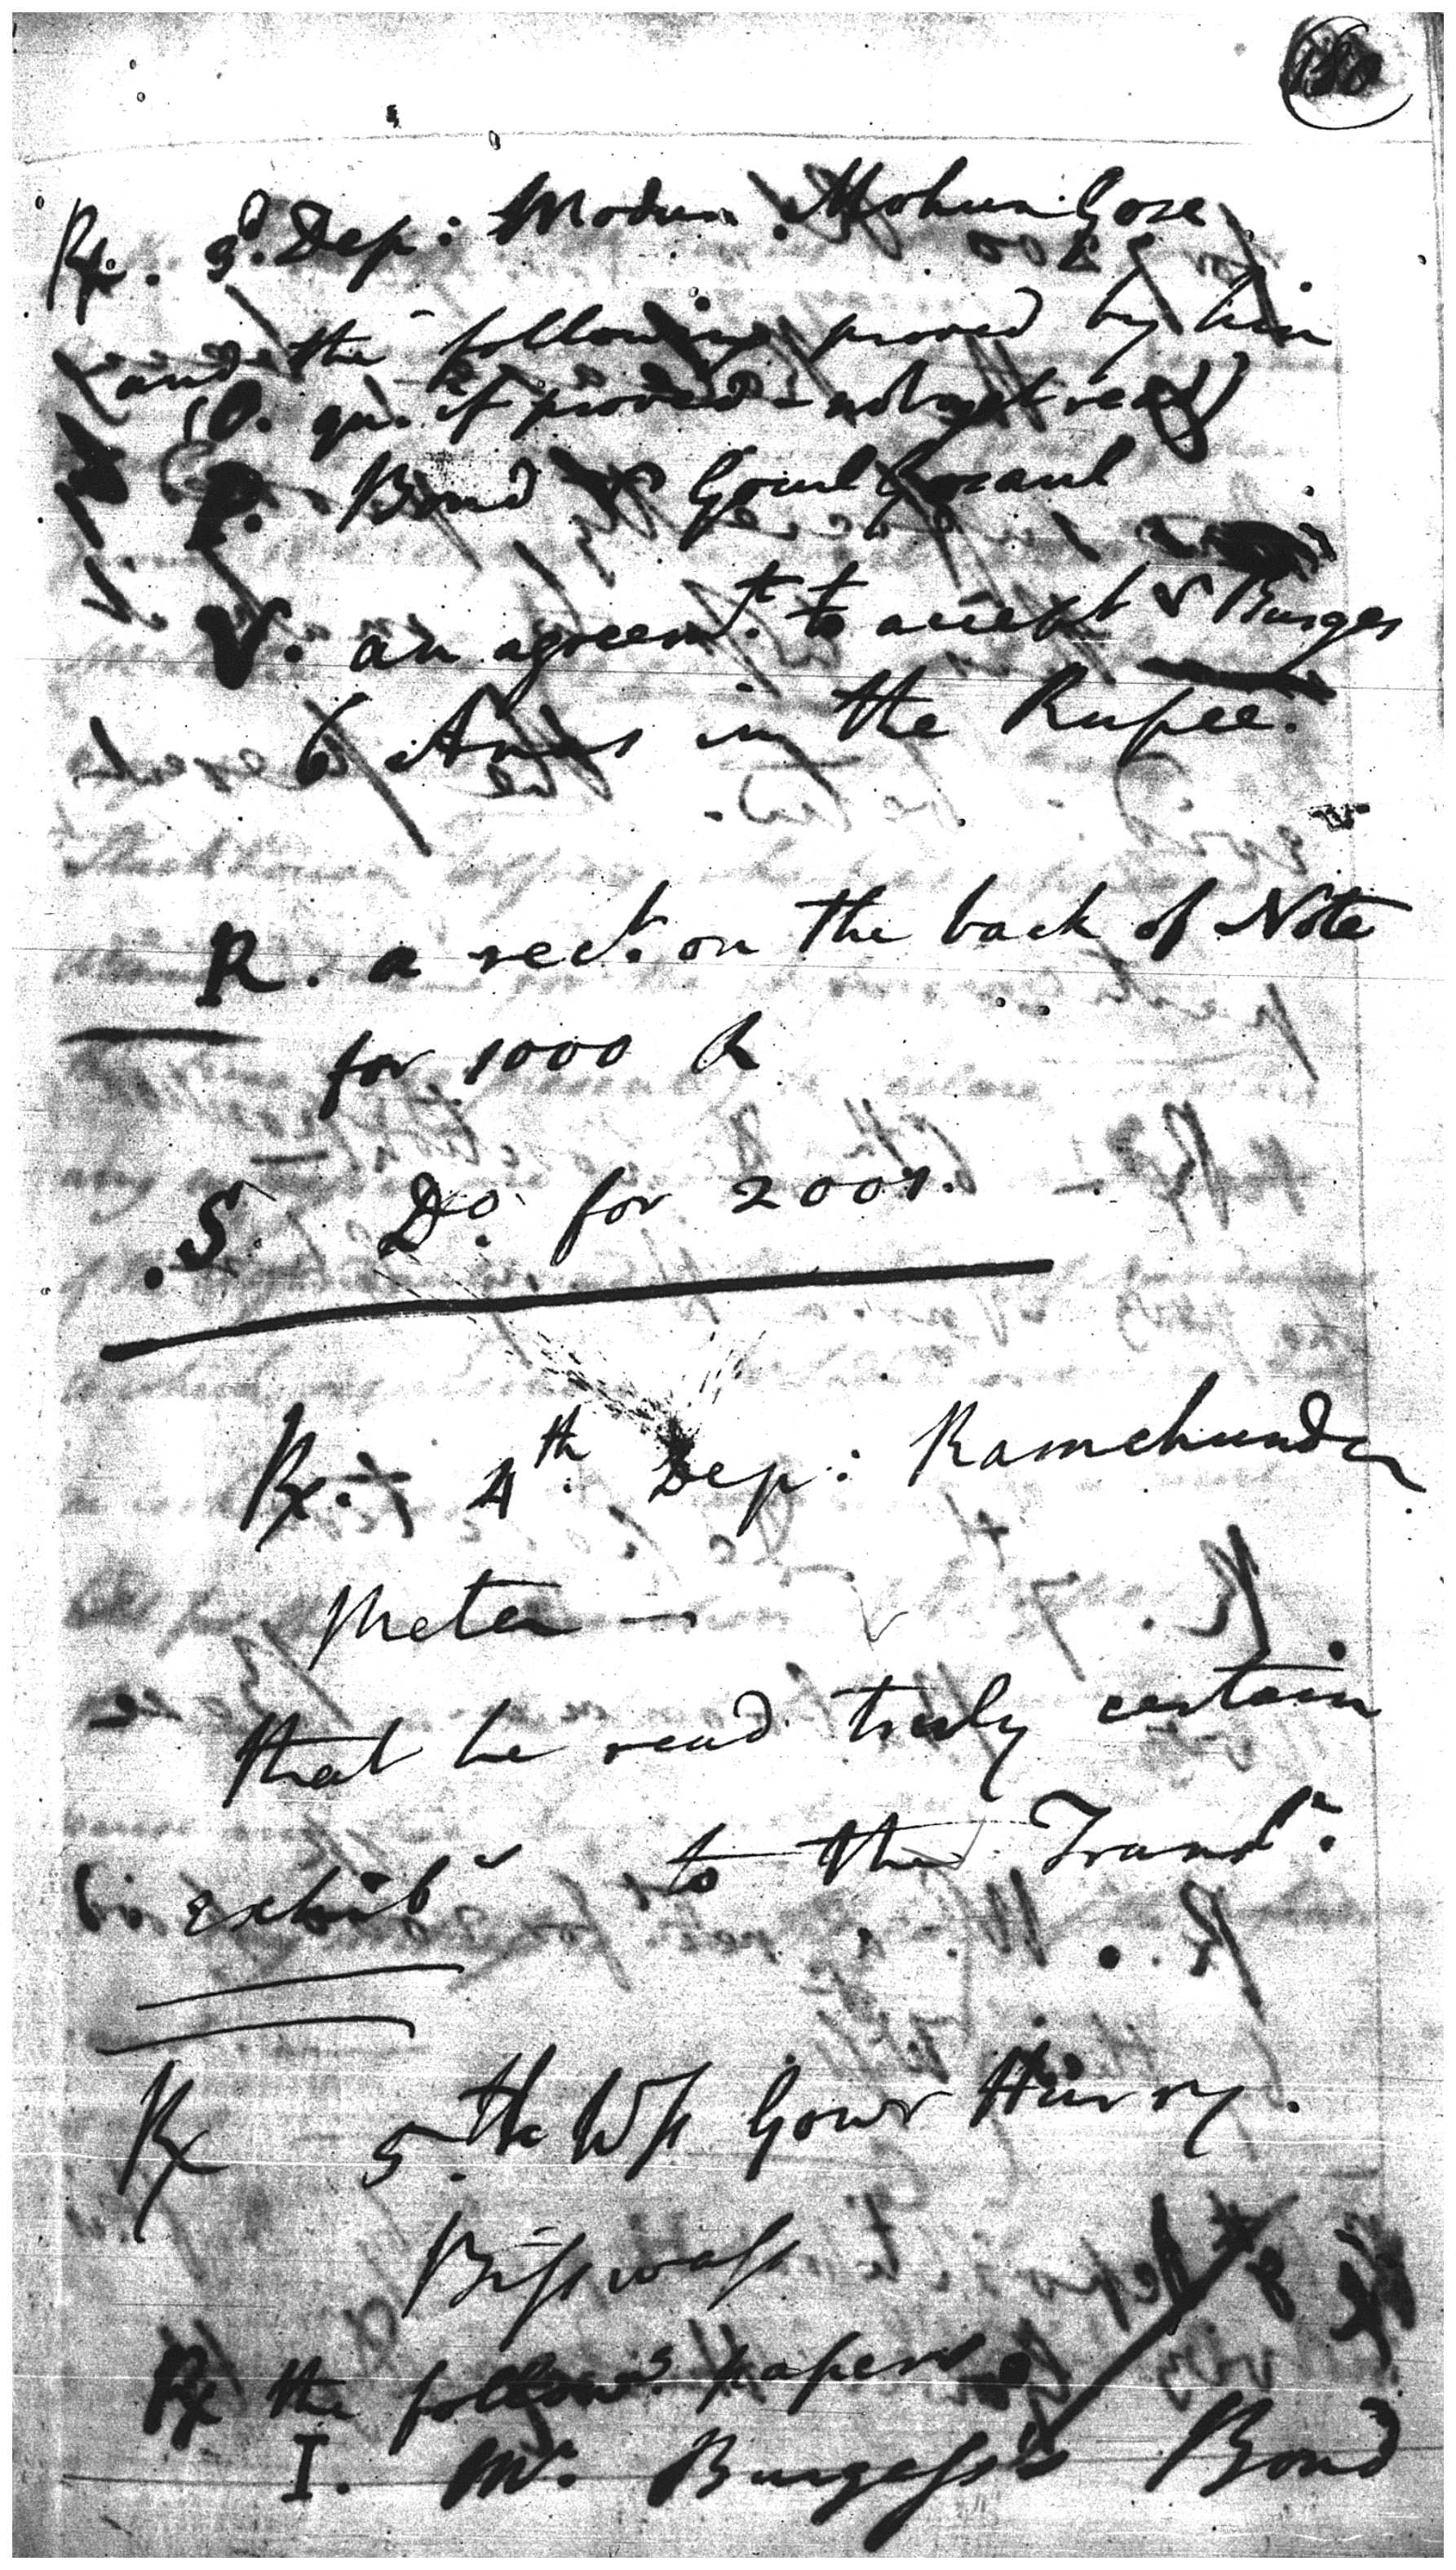 Rx. 3d. Dep: Modun Mohun Gose
and the following proved by him
(O. qu. if proved - not yet read)
P. Bond Gocul
V. an agreemt. to accept Burges
6 Anas in the Rupee.
R. a rect. on the back of Note
for 1000 R
S. Do. for 2000.
Rx. 4th Dep: Ramchunder
Meter —
that he read truly certain
exhibs to the Transr.
Rx 5.th Wss Gour Hurry.
Bisswass
Rx the follows. papers
I. Mr. Burgess's Bond